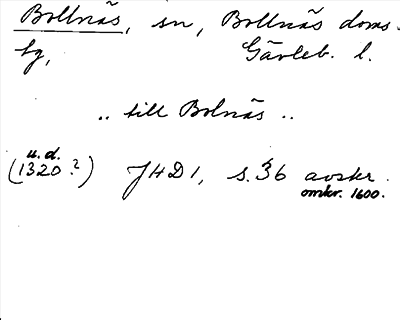 Bollnäs, sn, Bollnäs doms.
tg, Gävleb. l.
.. till Bolnäs ..
u.d.
(1320?) JHD 1, s. 36 avskr.
omkr. 1600.